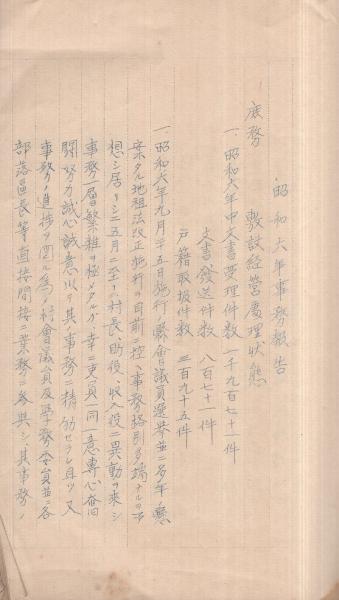 昭和六年事務報告
庶務 敷設経営処理状態
一、昭和六年中文書受理件数 一千九百七十一件
文書發送件数 八百七十一件
戸籍取扱件数 三百九十五件
一、昭和六年九月二十五日施行ノ縣會議員選挙並ニ多年ノ懸
案タル地租法改正施行ヲ目前ニ控ヘ事務格別多端ナルヲ予
想シ居リシニ五月ニ至リ村長、助役、收入役ニ異動ヲ来シ
事務層一繁雑ヲ極メタルガ幸ニ吏員一同一意専心奮
闘努力誠心誠意以テ其ノ事務ニ精励セラレ且ツ又
事務ノ進捗ヲ図ル為メ村會議員及學務委員並ニ各
部落區長等直接間接ニ業務ニ参與シ、其事務ノ